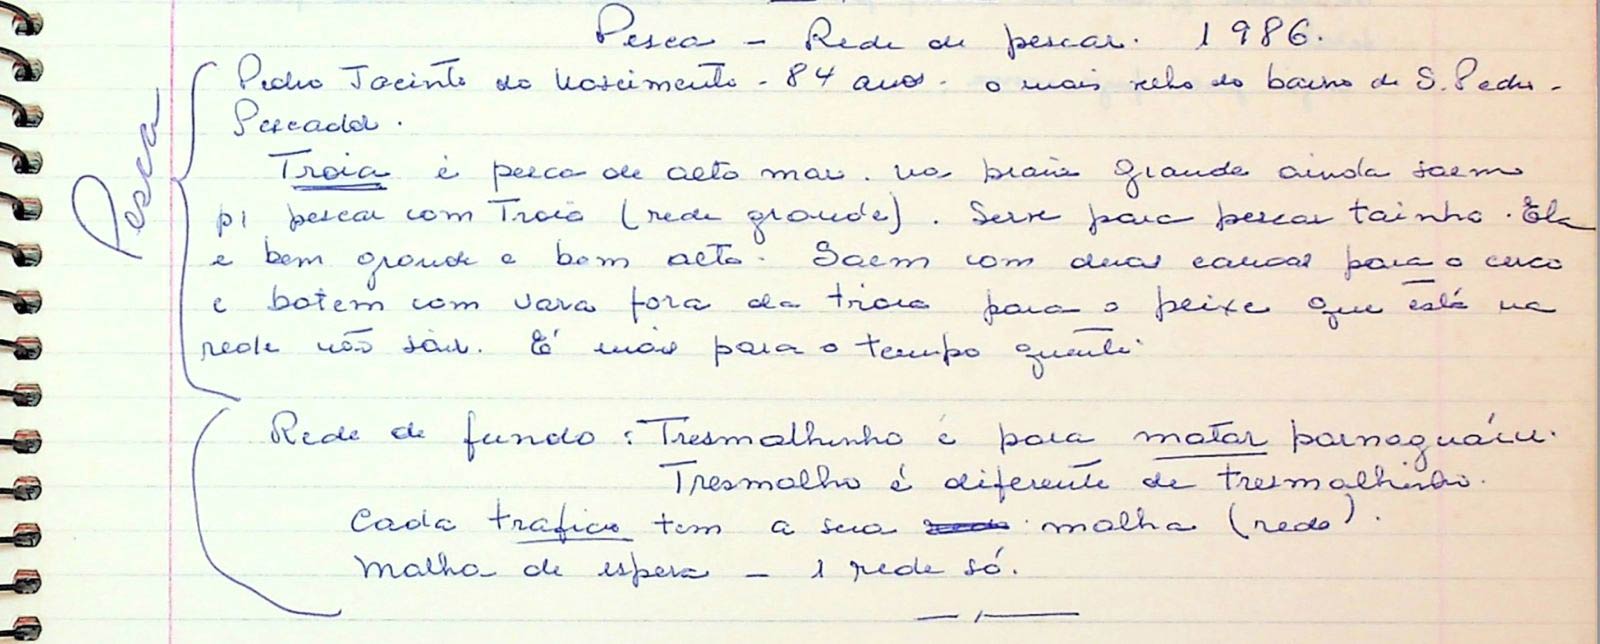 Pesca - Rede de pescar. 1986.
Pedro Jacinto do Nascimento - 84 anos - o mais velho do bairro de S. Pedro -
Pescador.
Pesca
Troia é pesca de alto mar. na praia Grande ainda saem
p/ pescar com Troia (rede grande). Serve para pescar tainha. Ela
e bem grande e bem alta. Saem com duas canoas para o cerco
e batem com vara fora da troia para o peixe que está na
rede não sair. É mais para o tempo quente.
Rede de fundo: Tresmalhinho é para matar parnaguáiu.
Tresmalho é diferente de tresmalhinho.
Cada trafico tem a sua malha (rede).
Malha de espera - 1 rede só.